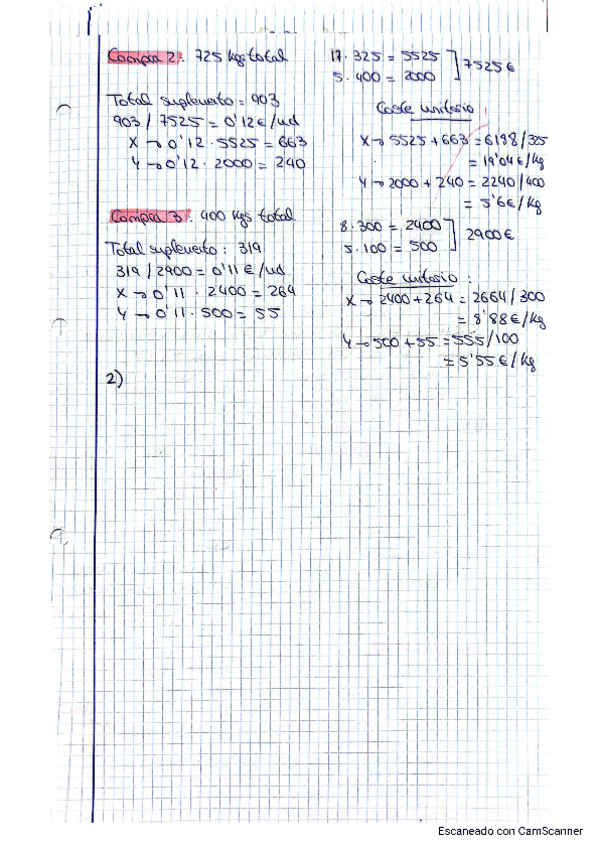 Compra 2: 725 kgs total
17 · 325 = 5525
5 · 400 = 2000
7525€
Total suplemento = 903
903 / 7525 = 0'12€/ud
X → 0'12 · 5525 = 663
Y → 0'12 · 2000 = 240
Coste unitario
X → 5525 + 663 = 6188/325
= 19'04€/kg
Y → 2000 + 240 = 2240/400
= 5'6€/kg
Compra 3: 400 kgs total
8 · 300 = 2400
5 · 100 = 500
2900€
Total suplemento : 319
319 / 2900 = 0'11€/ud
X → 0'11 · 2400 = 264
Y → 0'11 · 500 = 55
Coste unitario :
X → 2400 + 264 = 2664/300
= 8'88€/kg
Y → 500 + 55 = 555/100
= 5'55€/kg
2)
Escaneado con CamScanner